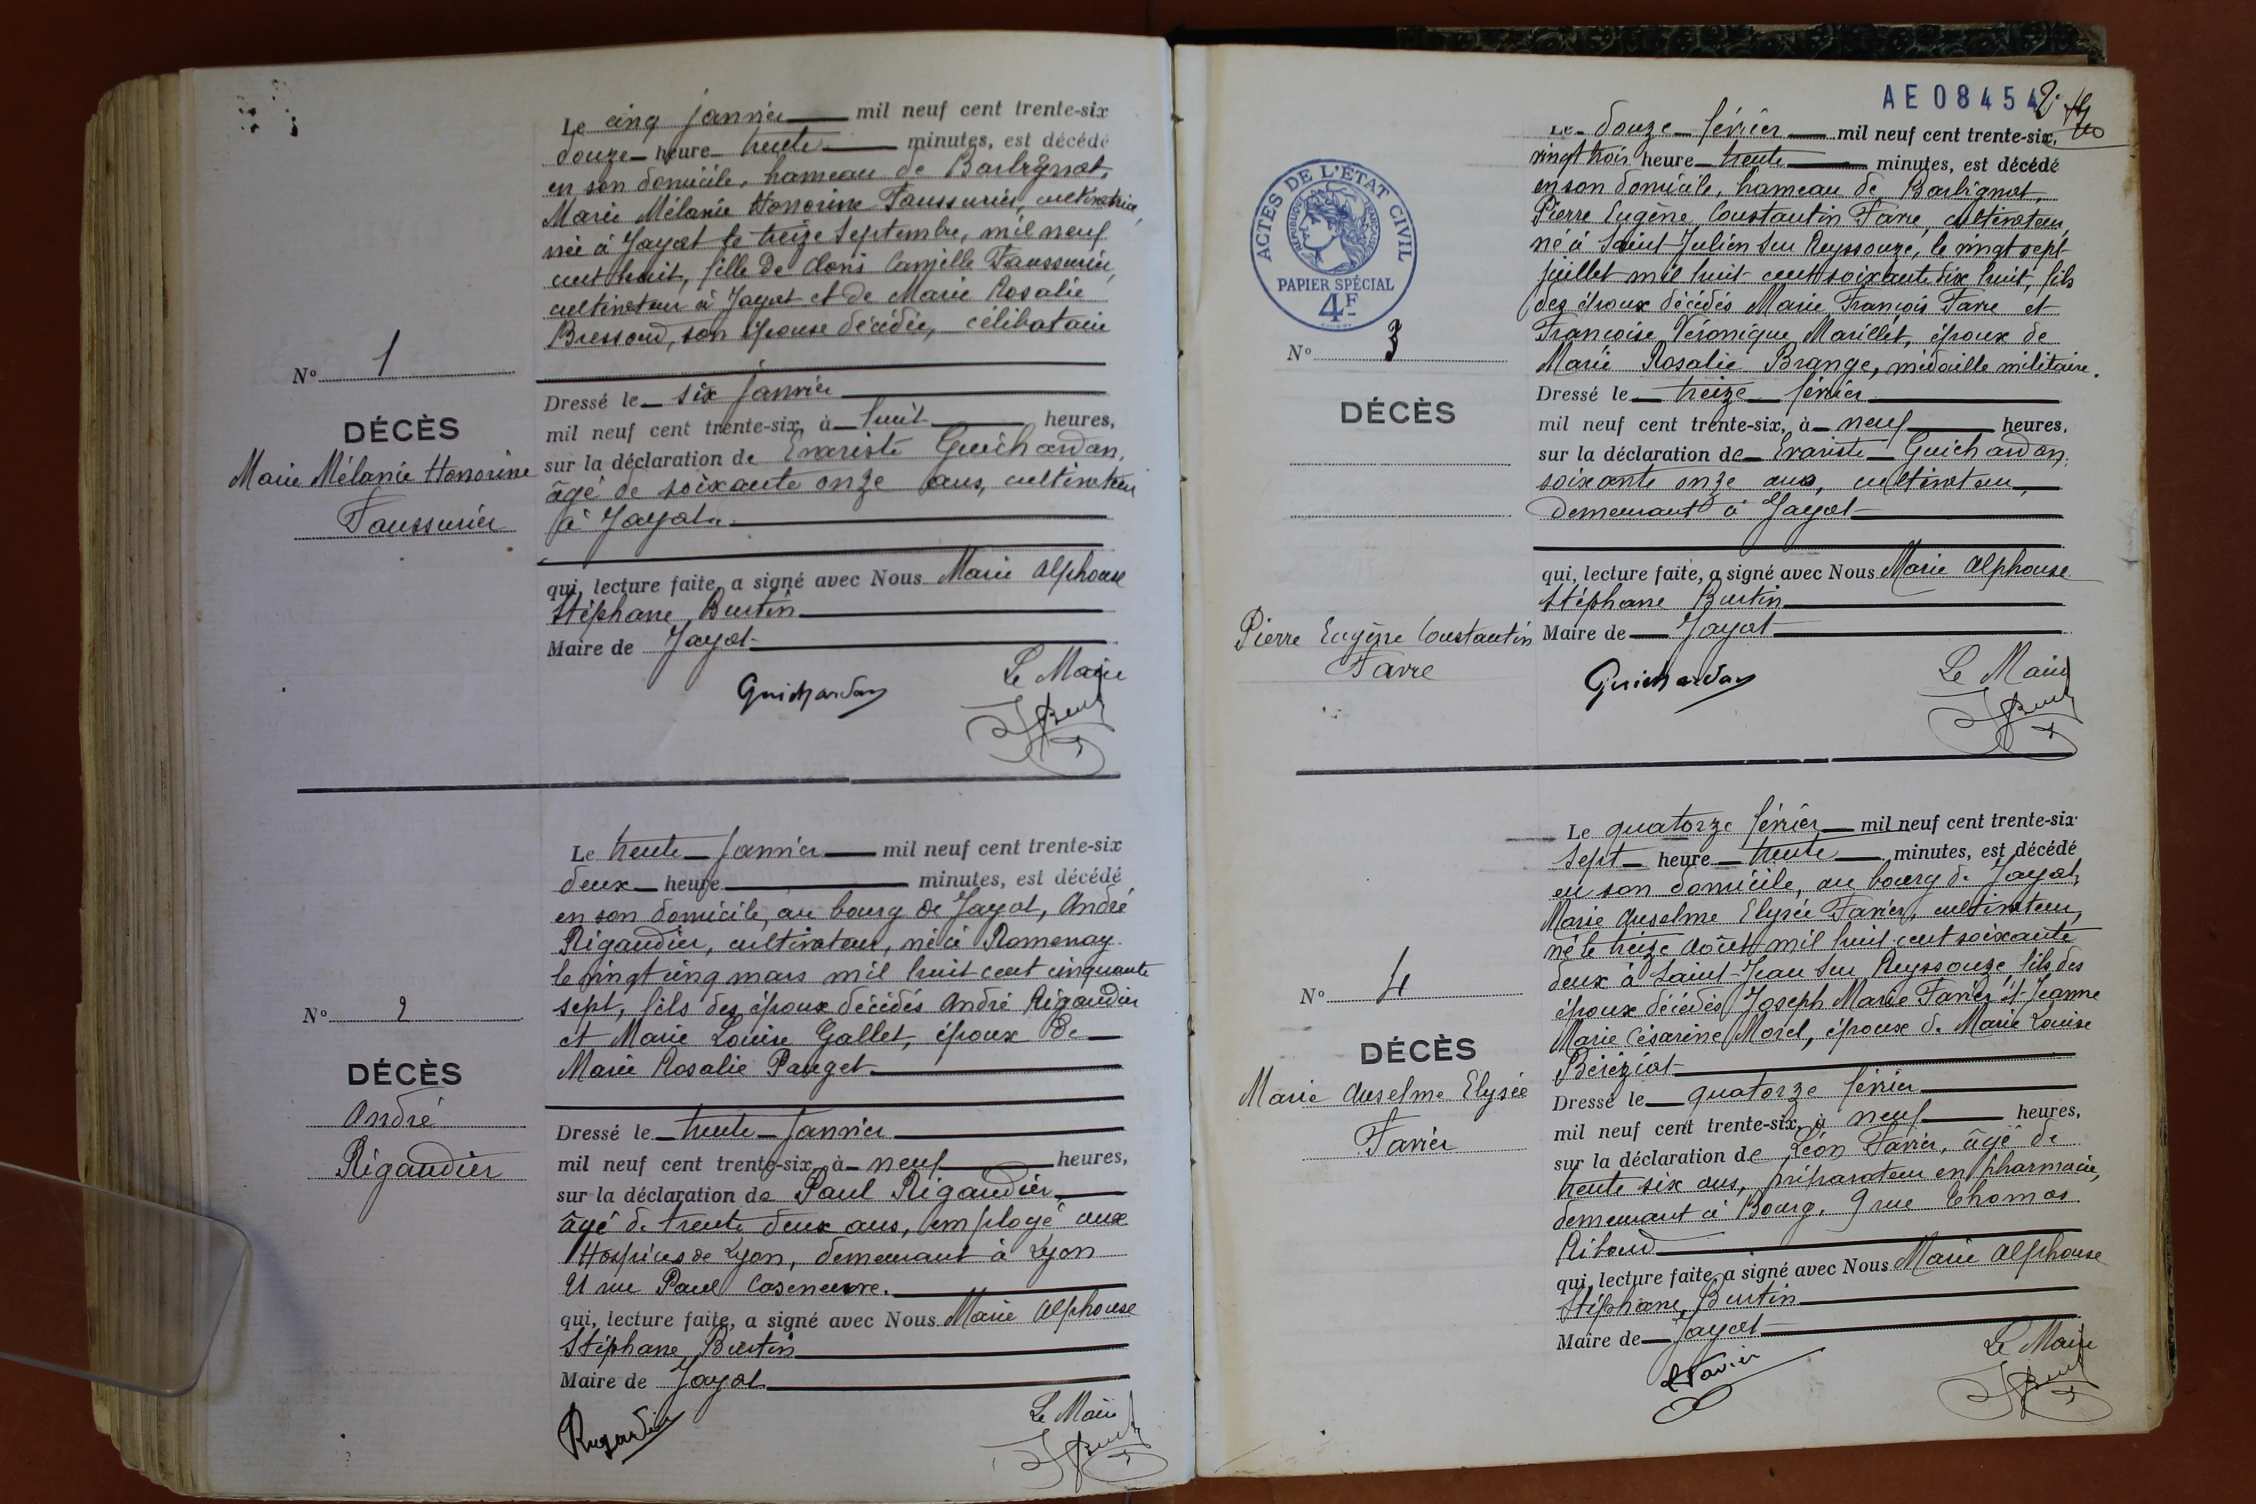 Le cinq janvier mil neuf cent trente-six
douze heure trente minutes, est décédé
en son domicile, hameau de Barbignat,
Marie Mélanie Honorine Faussurier, cultivatrice,
née à Jayat le treize Septembre, mil neuf
cent huit, fille de Clovis Camille Faussurier,
cultivateur à Jayat et de Marie Rosalie
Bressoud, son épouse décédée, célibataire
N° 1
DÉCÈS
Marie Mélanie Honorine
Faussurier
Dressé le six janvier
mil neuf cent trente-six, à huit heures,
sur la déclaration de Evariste Guichardan,
âgé de soixante onze ans, cultivateur
à Jayat
qui, lecture faite, a signé avec Nous Marie Alphonse
Stéphane Burtin
Maire de Jayat
Le Maire
Guichardan
Le trente janvier mil neuf cent trente-six
deux heure minutes, est décédé
en son domicile, au bourg de Jayat, André
Rigaudier, cultivateur, né à Romenay
le vingt cinq mars mil huit cent cinquante
sept, fils des époux décédés André Rigaudier
et Marie Louise Gallet, époux de
Marie Rosalie Pauget
N° 2
DÉCÈS
André
Rigaudier
Dressé le trente janvier
mil neuf cent trente-six, à neuf heures,
sur la déclaration de Paul Rigaudier,
âgé de trente deux ans, employé aux
Hospices de Lyon, demeurant à Lyon
rue Paul Caseneuve.
qui, lecture faite, a signé avec Nous Marie Alphonse
Stéphane Burtin
Maire de Jayat
Le Maire
Rigaudier
AE 08454
2
Le douze février mil neuf cent trente-six,
vingt trois heure trente minutes, est décédé
en son domicile, hameau de Barbignat,
Pierre Eugène Constantin Favre, cultivateur,
né à Saint-Julien sur Reyssouze, le vingt sept
juillet mil huit cent soixante dix huit, fils
des époux décédés Marie François Favre et
Françoise Véronique Marillet, époux de
Marie Rosalie Brange, médaille militaire.
ACTES DE L'ÉTAT CIVIL
RÉPUBLIQUE FRANÇAISE
PAPIER SPÉCIAL
4F
N° 3
DÉCÈS
Dressé le treize février
mil neuf cent trente-six, à neuf heures,
sur la déclaration de Evariste Guichardan,
soixante onze ans, cultivateur,
demeurant à Jayat
qui, lecture faite, a signé avec Nous Marie Alphonse
Stéphane Burtin
Maire de Jayat
Pierre Eugène Constantin
Favre
Le Maire
Guichardan
Le quatorze février mil neuf cent trente-six
sept heure trente minutes, est décédé
en son domicile, au bourg de Jayat,
Marie Anselme Elysée Favier, cultivateur,
né le treize août mil huit cent soixante
deux à Saint-Jean sur Reyssouze, fils des
époux décédés Joseph Marie Favier et Jeanne
Marie Césarine Morel, époux de Marie Louise
Béréziat
N° 4
DÉCÈS
Marie Anselme Elysée
Favier
Dressé le quatorze février
mil neuf cent trente-six, à neuf heures,
sur la déclaration de Léon Favier, âgé de
trente six ans, préparateur en pharmacie,
demeurant à Bourg, 9 rue Thomas
Riboud
qui, lecture faite, a signé avec Nous Marie Alphonse
Stéphane Burtin
Maire de Jayat
Le Maire
LFavier